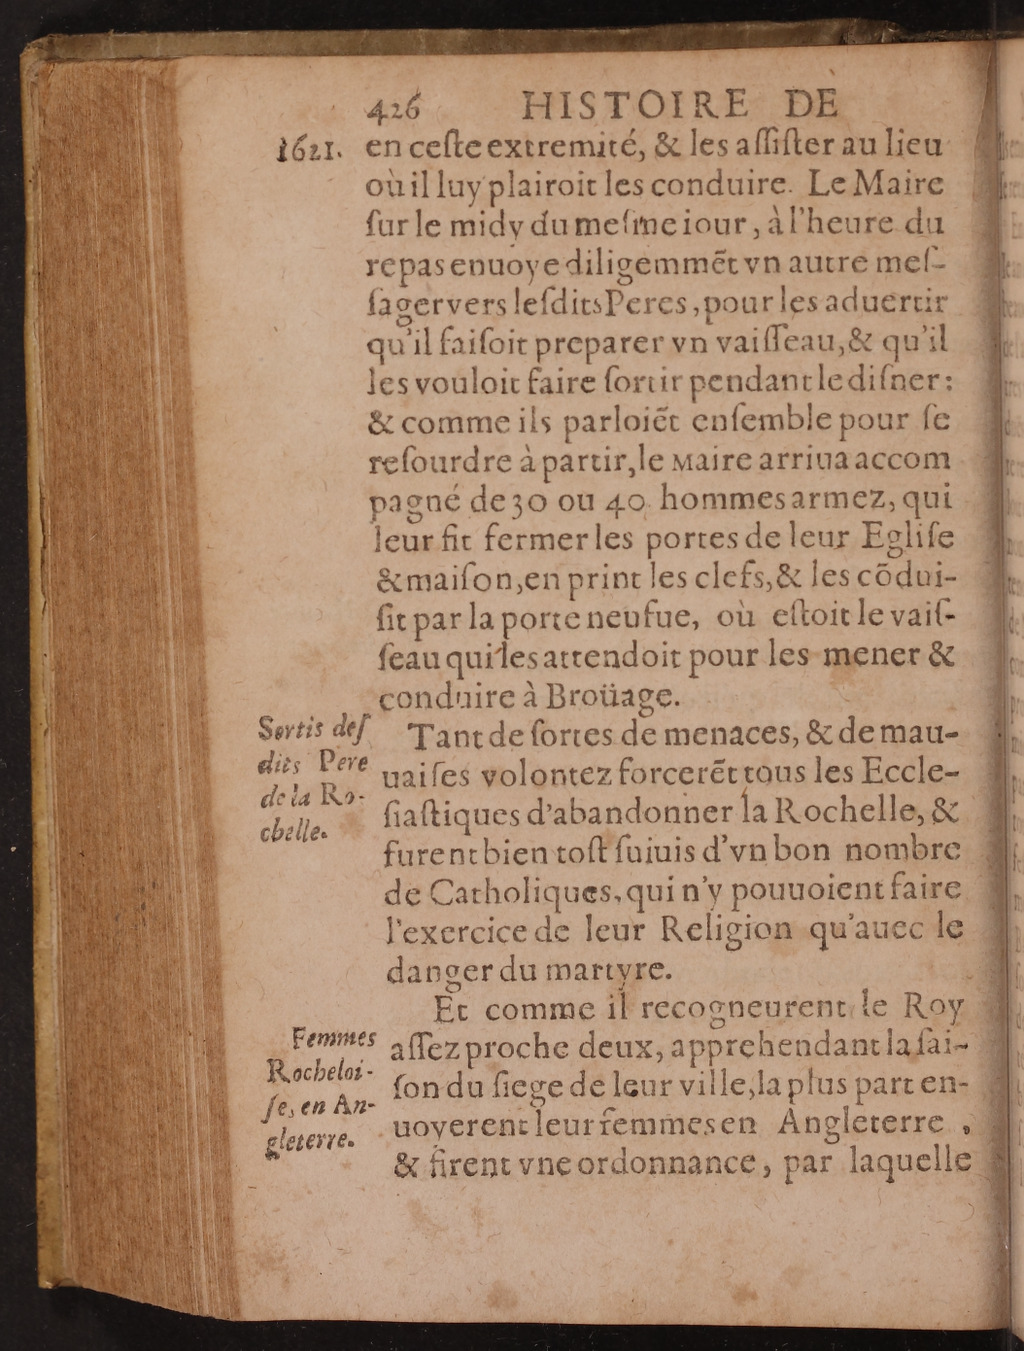 426 HISTOIRE DE
1621. en ceſte extremité, & les aſſiſter au lieu
où il luy plairoit les conduire. Le Maire
ſur le midy du meſme iour, à l'heure du
repas enuoye diligemmēt vn autre meſ-
ſager vers leſdits Peres, pour les aduertir
qu'il faiſoit preparer vn vaiſſeau, & qu'il
les vouloit faire ſortir pendant le diſner:
& comme ils parloiēt enſemble pour ſe
reſourdre à partir, le Maire arriua accom
pagné de 30 ou 40. hommes armez, qui
leur fit fermer les portes de leur Egliſe
& maiſon, en print les clefs, & les cōdui-
ſit par la porte neufue, où eſtoit le vaiſ-
ſeau qui les attendoit pour les mener &
conduire à Broüage.
Sortis deſ
dits Pere
de la Ro-
chelle.
Tant de ſortes de menaces, & de mau-
uaiſes volontez forcerēt tous les Eccle-
ſiaſtiques d'abandonner la Rochelle, &
furent bien toſt ſuiuis d'vn bon nombre
de Catholiques, qui n'y pouuoient faire
l'exercice de leur Religion qu'auec le
danger du martyre.
Et comme il recogneurent le Roy
Femmes
Rocheloi-
ſe, en An-
gleterre.
aſſez proche deux, apprehendant la ſai-
ſon du ſiege de leur ville, la plus part en-
uoyerent leur femmes en Angleterre,
& firent vne ordonnance, par laquelle